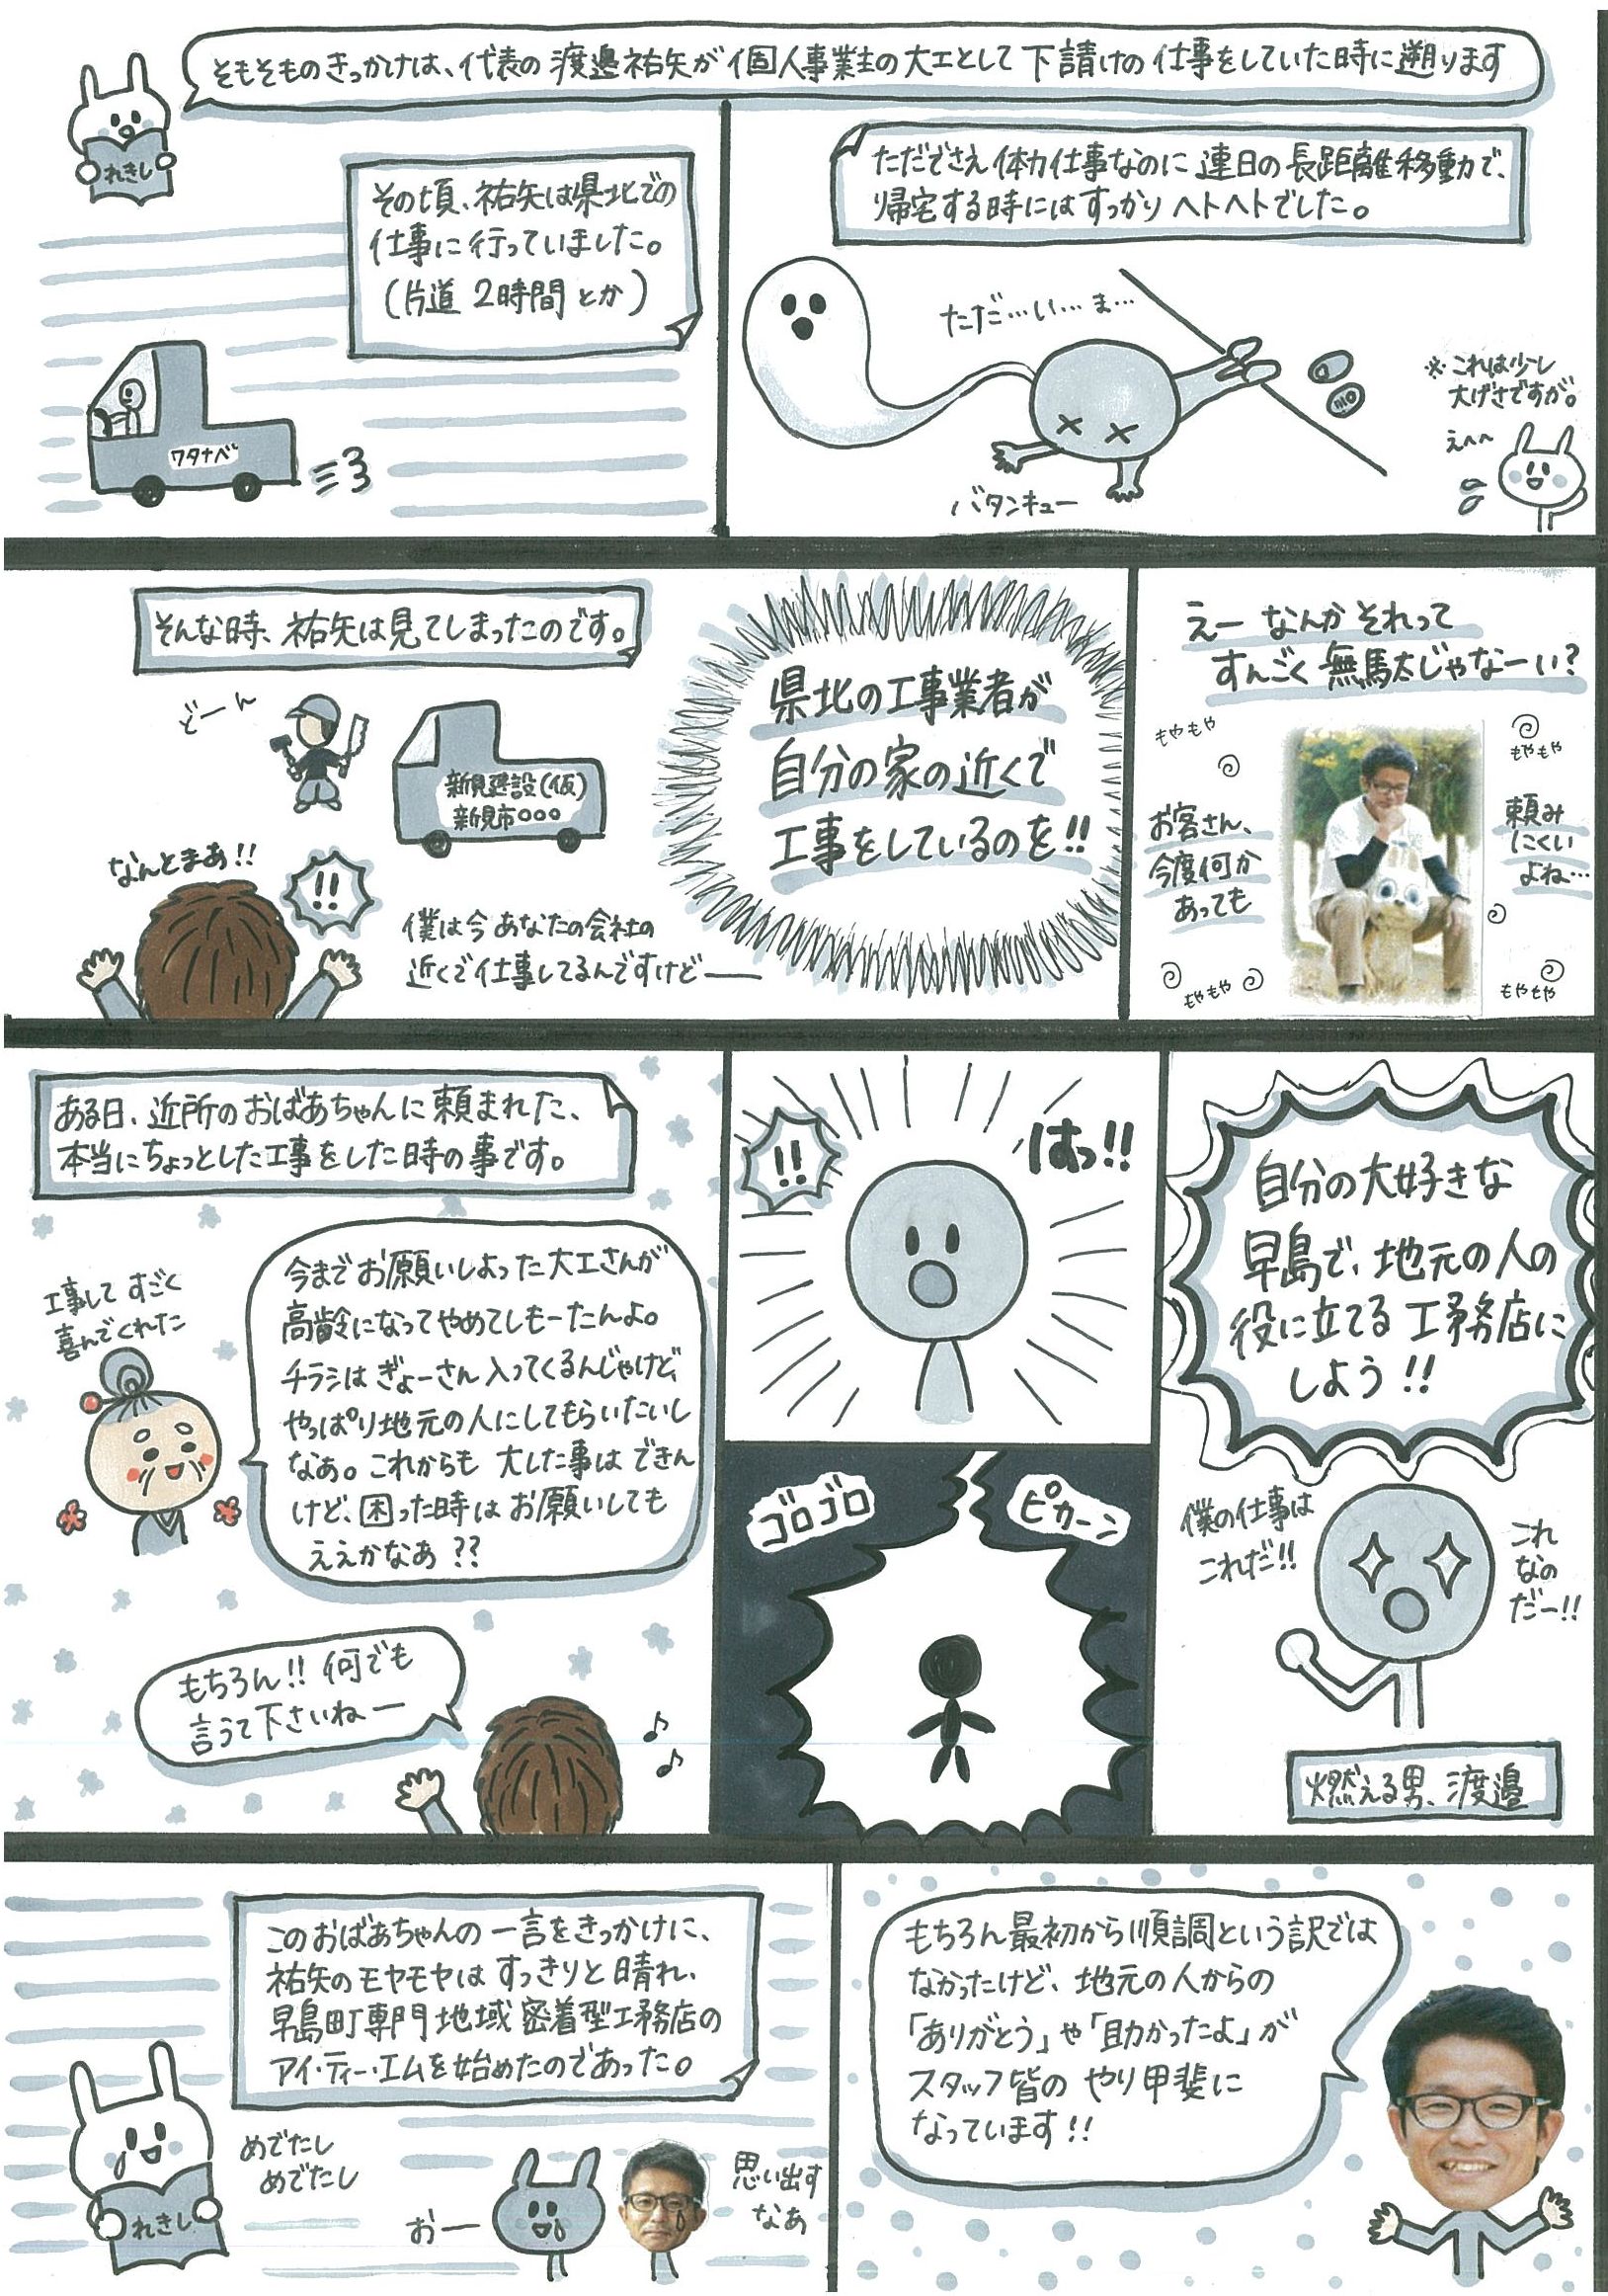 そもそものきっかけは、代表の渡邊祐矢が個人事業主の大工として下請けの仕事をしていた時に遡ります
れきし
その頃、祐矢は県北での
仕事に行っていました。
(片道 2時間とか)
ワタナベ
ただでさえ体力仕事なのに連日の長距離移動で、
帰宅する時にはすっかりヘトヘトでした。
ただ…い…ま…
バタンキュー
※これは少し
大げさですが。
えへへ
そんな時、祐矢は見てしまったのです。
どーん
新見建設(仮)
新見市○○○
なんとまあ!!
!!
僕は今あなたの会社の
近くで仕事してるんですけど――
県北の工事業者が
自分の家の近くで
工事をしているのを!!
えー なんかそれって
すんごく無駄じゃなーい?
もやもや
もやもや
お客さん、
今度何か
あっても
頼み
にくい
よね…
もやもや
もやもや
ある日、近所のおばあちゃんに頼まれた、
本当にちょっとした工事をした時の事です。
工事して すごく
喜んでくれた
今までお願いしよった大工さんが
高齢になってやめてしもーたんよ。
チラシはぎょーさん入ってくるんじゃけど、
やっぱり地元の人にしてもらいたいし
なぁ。これからも 大した事はできん
けど、困った時はお願いしても
ええかなあ??
もちろん!!何でも
言うて下さいねー
!!
はっ!!
ゴロゴロ
ピカーン
自分の大好きな
早島で、地元の人の
役に立てる工務店に
しよう!!
僕の仕事は
これだ!!
これ
なの
だー!!
燃える男、渡邊
このおばあちゃんの一言をきっかけに、
祐矢のモヤモヤはすっきりと晴れ、
早島町専門地域密着型工務店の
アイ・ティー・エムを始めたのであった。
れきし
めでたし
めでたし
おー
思い出す
なぁ
もちろん最初から順調という訳では
なかったけど、地元の人からの
「ありがとう」や「助かったよ」が
スタッフ皆のやり甲斐に
なっています!!